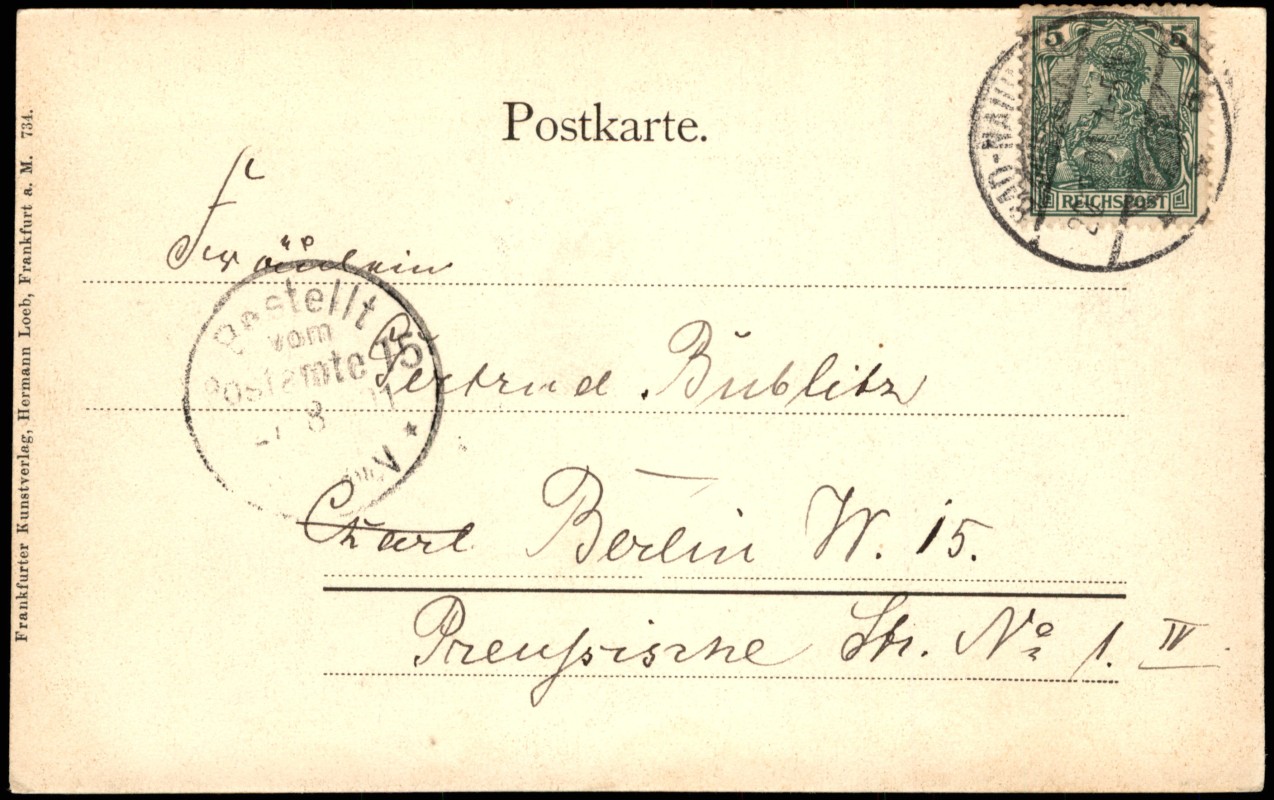 Postkarte.
5 5
REICHSPOST
BAD-NAUH
Fräulein
Gertrud Bublitz
Charl Berlin W. 15.
Preussische Str. No 1. IV
Bestellt
vom
Postamte 15
8
Frankfurter Kunstverlag, Hermann Loeb, Frankfurt a. M. 734.